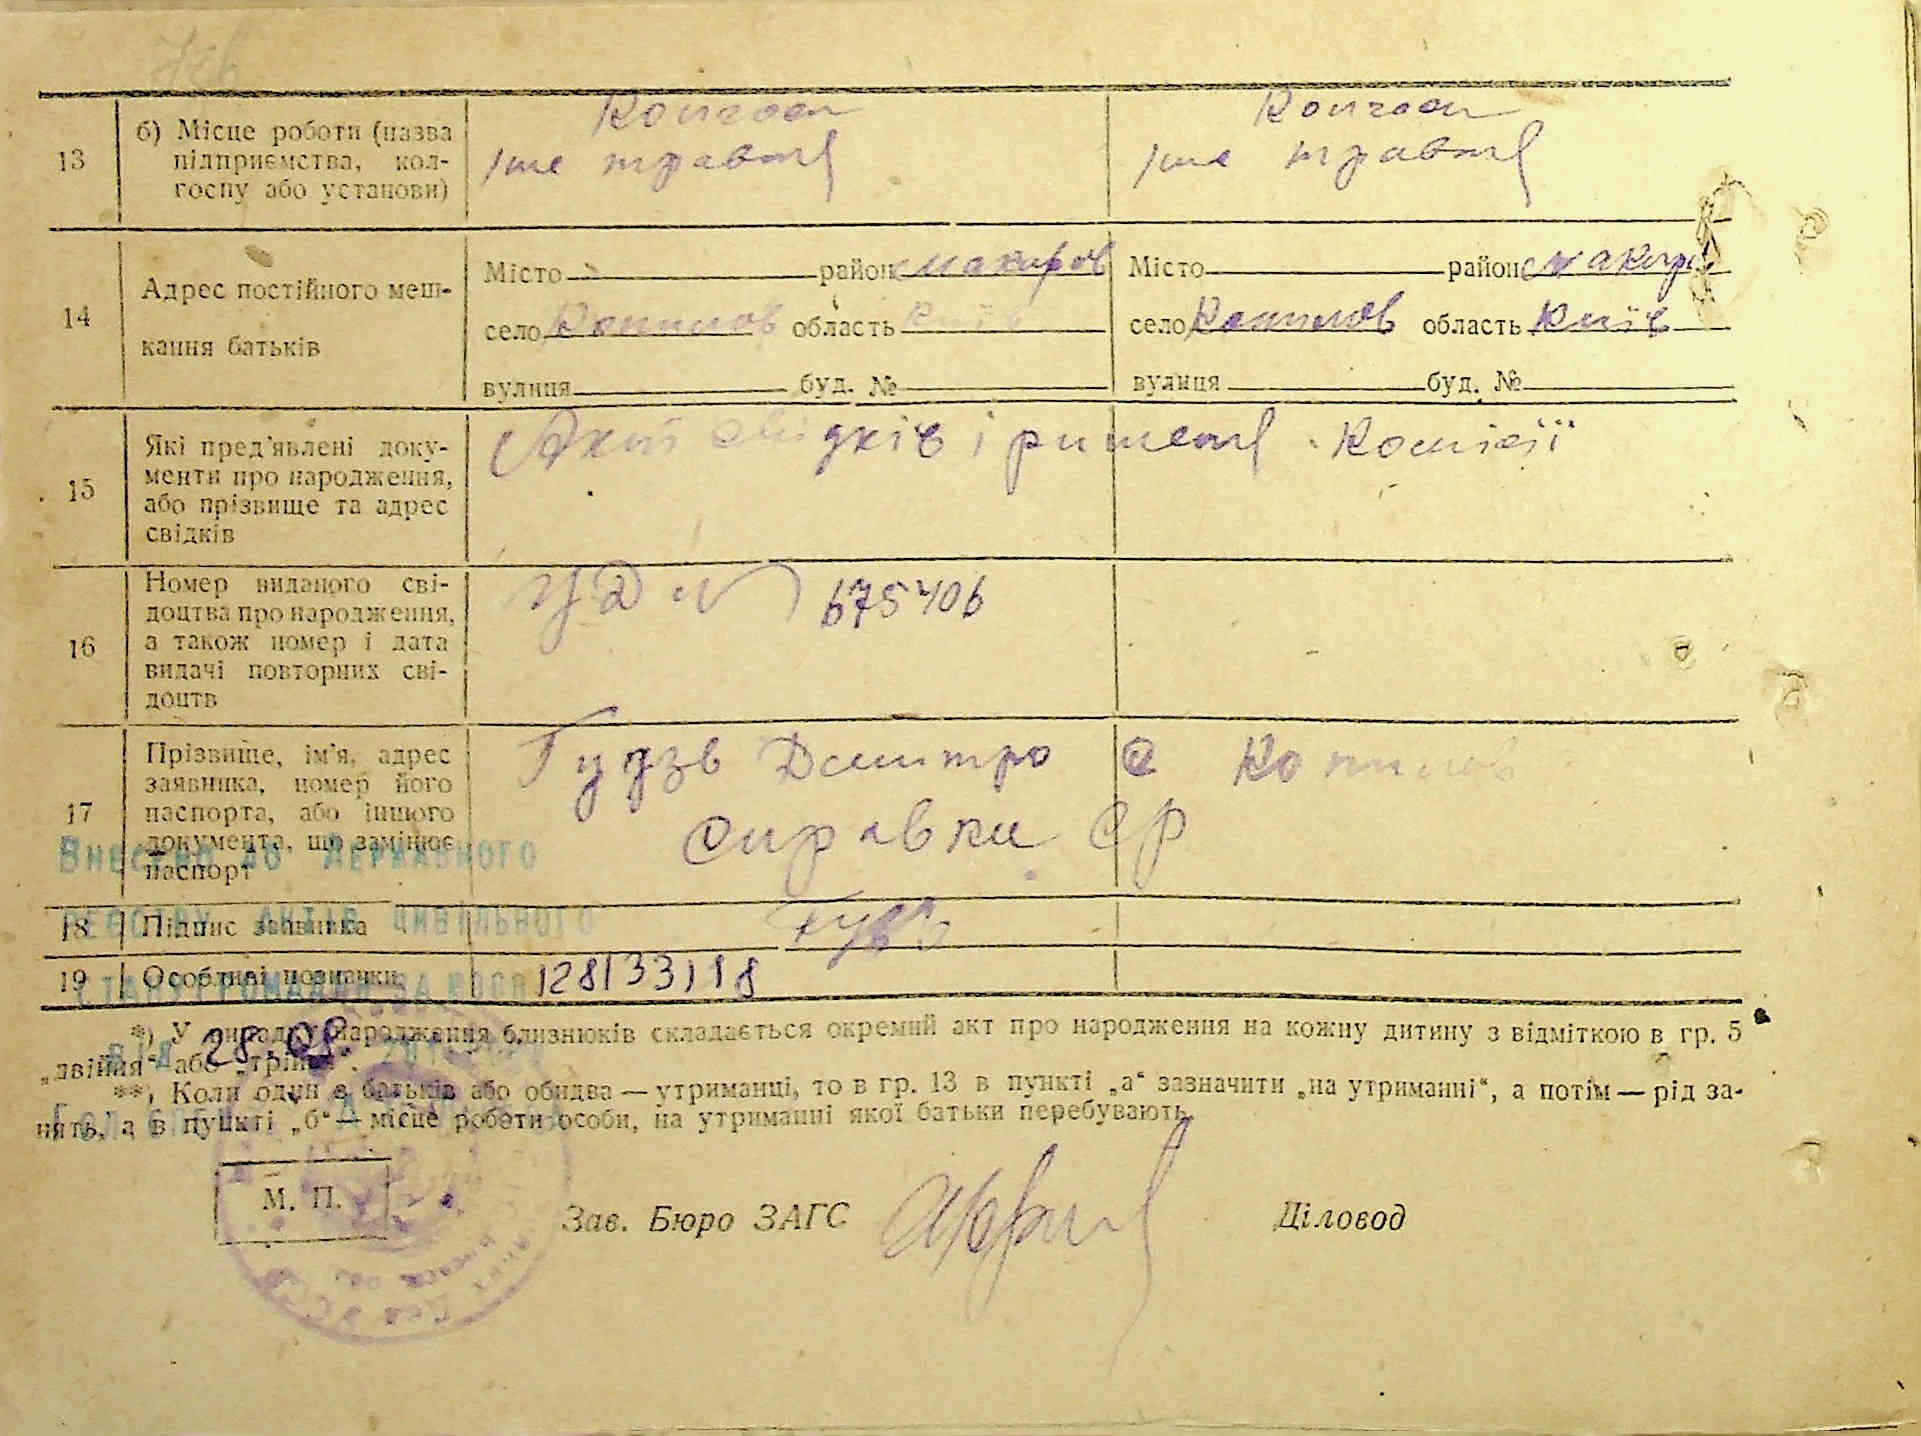 13
б) Місце роботи (назва
підприємства, кол-
госпу або установи)
Колгосп
1ше травня
Колгосп
1ше травня
14
Адрес постійного меш-
кання батьків
Місто район Макаров
село Копилов область Київ
вулиця буд. №
Місто район Макаров
село Копилов область Київ
вулиця буд. №
15
Які пред'явлені доку-
менти про народження,
або прізвище та адрес
свідків
Акт свідків і рішення комісії
16
Номер виданого сві-
доцтва про народження,
а також номер і дата
видачі повторних сві-
доцтв
675406
17
Прізвище, ім'я, адрес
заявника, номер його
паспорта, або іншого
документа, що замінює
паспорт
Дмитро с Копилов
справки ср
Внесено до Державного
реєстру актів цивільного
18
Підпис заявника
19
Особливі позначки
128133118
стану громадян за
*) У випадку народження близнюків складається окремий акт про народження на кожну дитину з відміткою в гр. 5
„двійня“ або „трійня“.
від 28.08.
**) Коли один з батьків або обидва — утриманці, то в гр. 13 в пункті „а“ зазначити „на утриманні“, а потім — рід за-
нять, а в пункті „б“ — місце роботи особи, на утриманні якої батьки перебувають.
М. П.
Зав. Бюро ЗАГС
Діловод